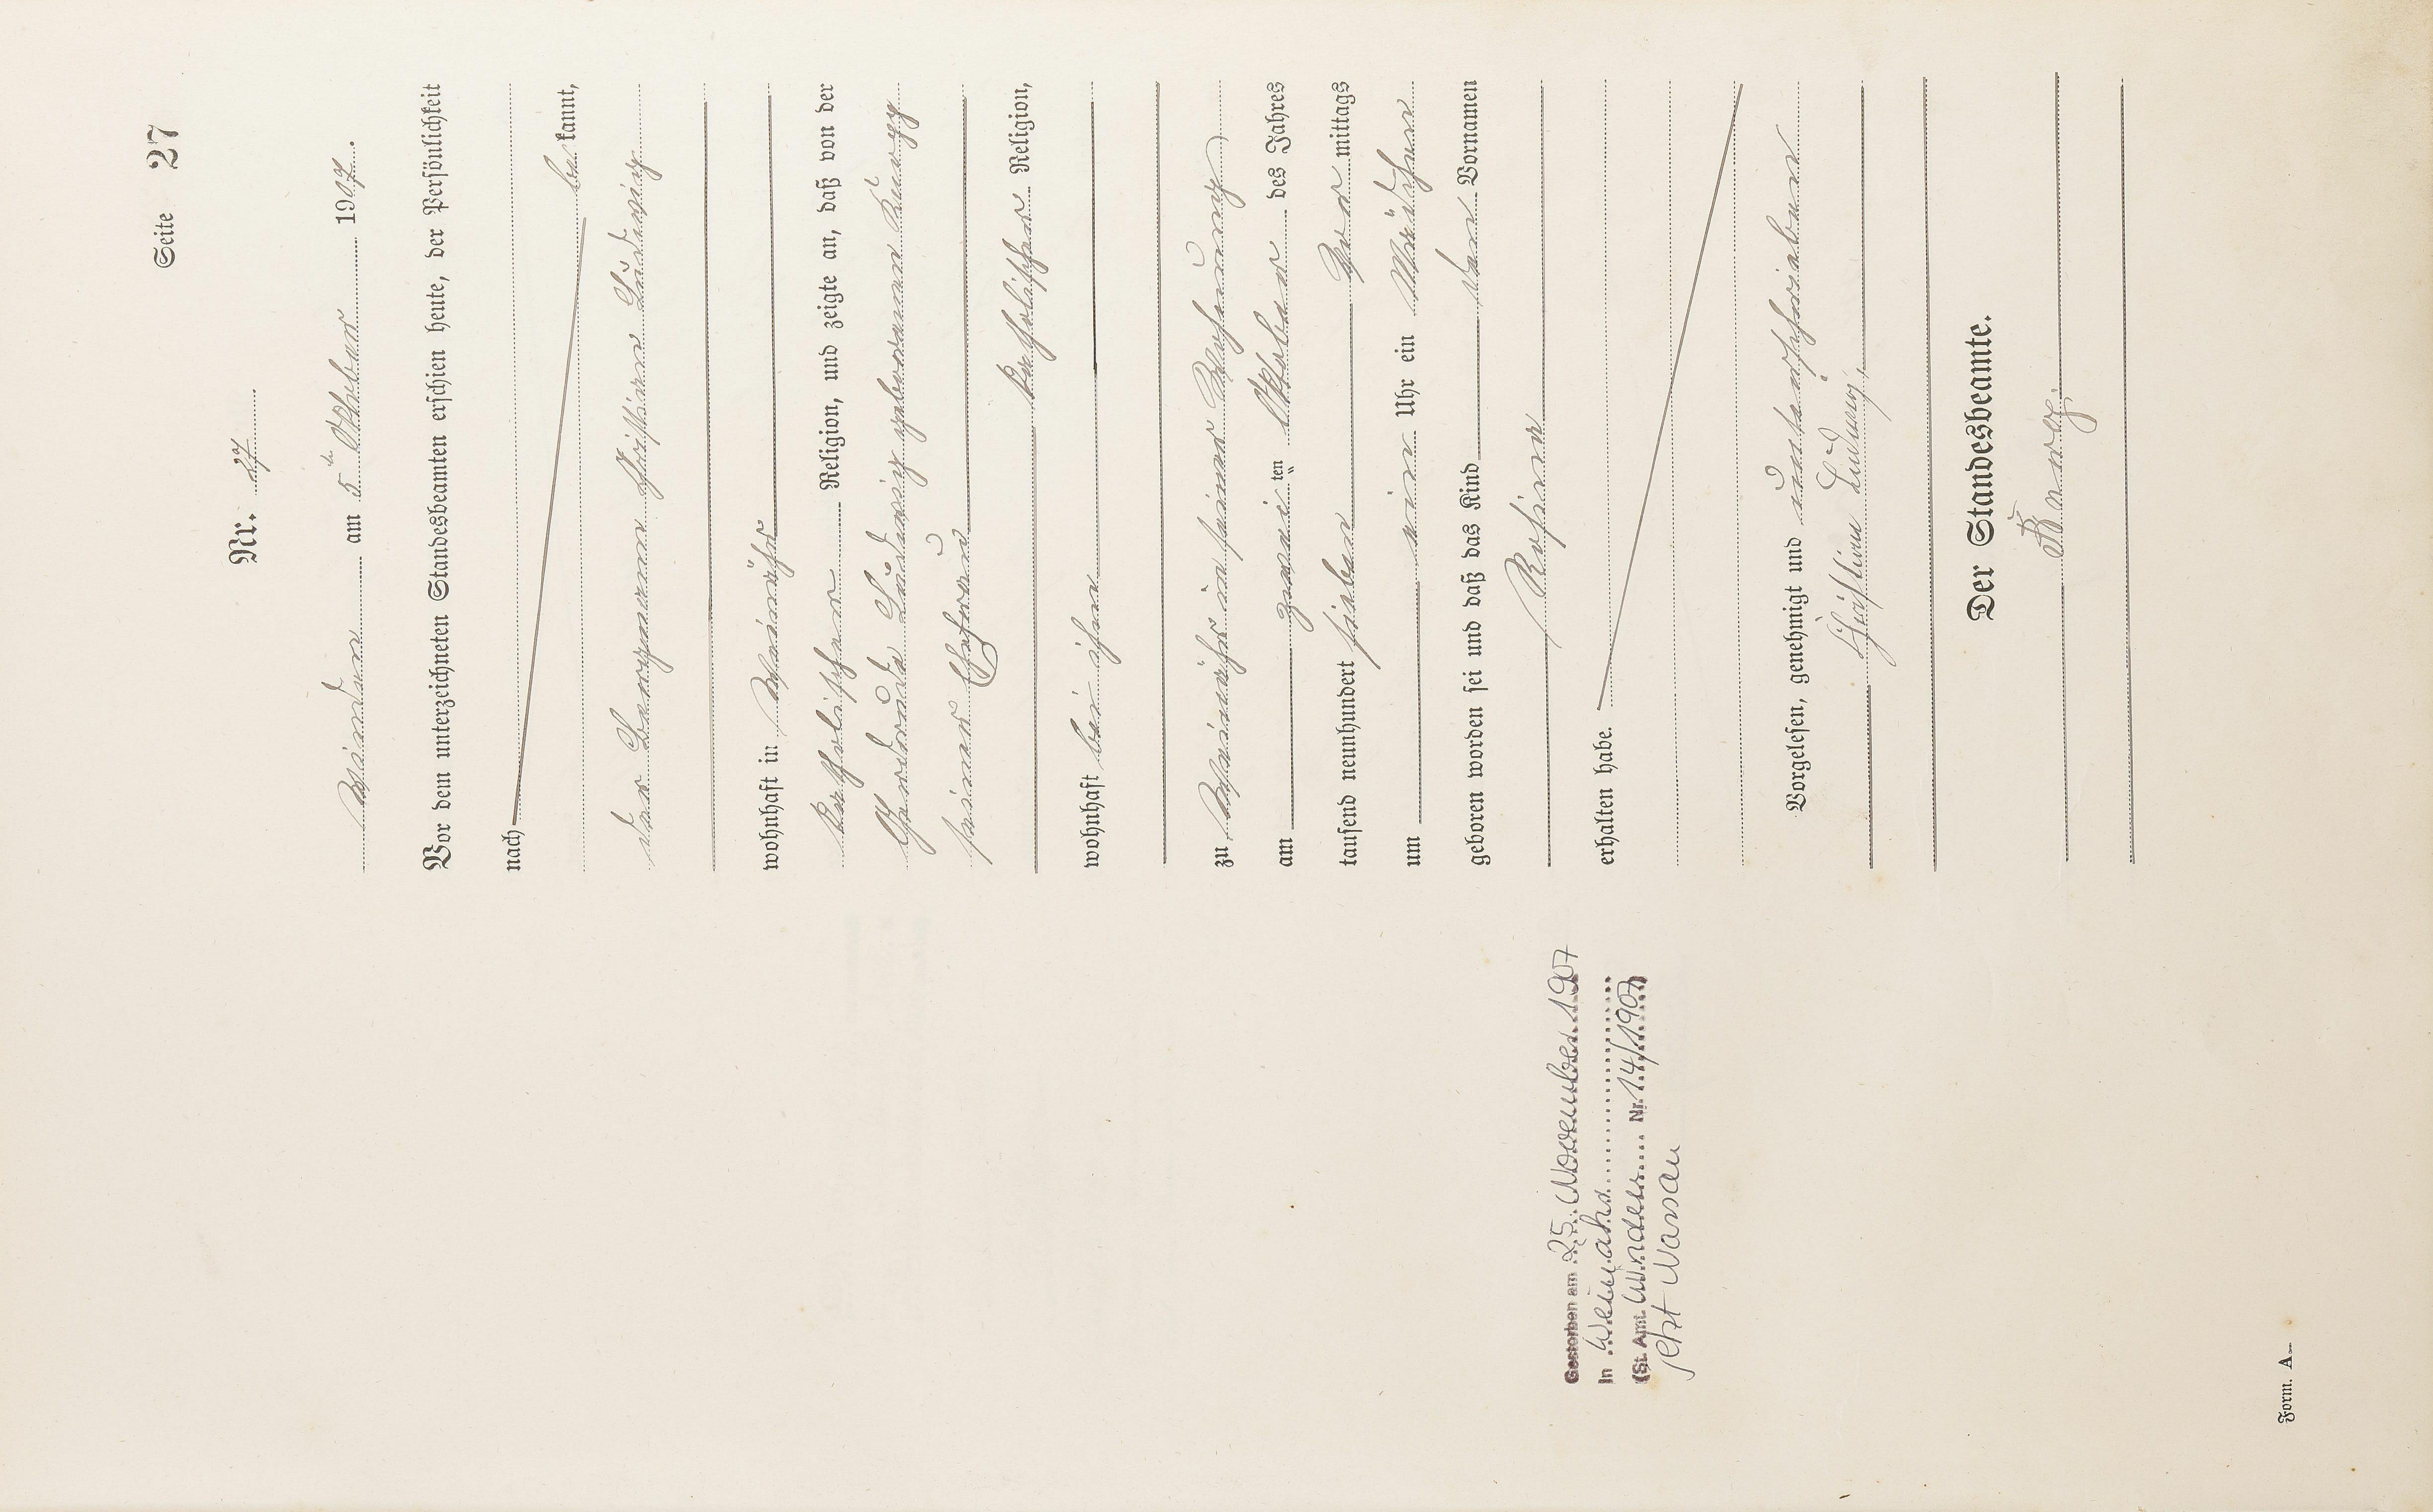 Seite 27
Nr. 27
Winden am 5ten Oktober 1907.
Vor dem unterzeichneten Standesbeamten erschien heute, der Persönlichkeit
nach
be kannt,
der Bergmann Christian Ludwig
wohnhaft in Weinähr
katholischer Religion, und zeigte an, daß von der
Gertrude Ludwig geborenen
seiner Ehefrau
katholischer Religion,
wohnhaft bei ihm
zu Weinähr in seiner Wohnung
am zwei ten Oktober des Jahres
tausend neunhundert sieben Vor mittags
um ein Uhr ein Mädchen
geboren worden sei und daß das Kind den Vornamen
Rosina
erhalten habe.
Vorgelesen, genehmigt und unterschrieben
Christian Ludwig.
Der Standesbeamte.
Gestorben am 25. November 1907
in Weinähr
(St. Amt Winden Nr. 14/1907)
jetzt Nassau
Form. A